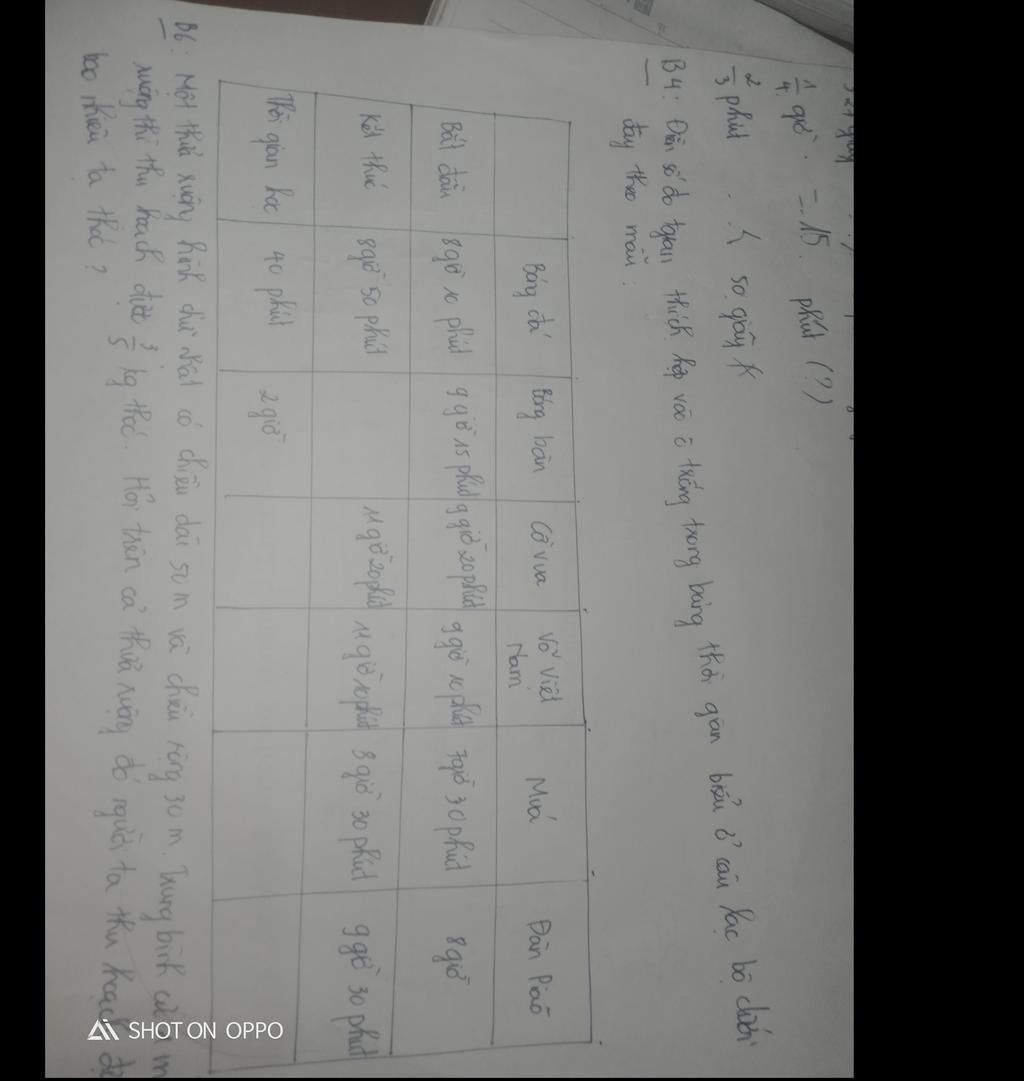 1/4 giờ . = ..15. phút (?)
2/3 phút . . < 50 giây
B4: Điền số đo tgian thích hợp vào ô trống trong bảng thời gian biểu ở câu lạc bộ dưới
đây theo mẫu:
Bóng đá Bóng bàn Cờ vua Võ Việt Nam Múa Đàn Piano
Bắt đầu 8 giờ 10 phút 9 giờ 15 phút 9 giờ 20 phút 9 giờ 10 phút 7 giờ 30 phút 8 giờ
Kết thúc 8 giờ 50 phút 11 giờ 20 phút 11 giờ 10 phút 8 giờ 30 phút 9 giờ 30 phút
Thời gian học 40 phút 2 giờ
B6: Một thửa ruộng hình chữ nhật có chiều dài 50 m và chiều rộng 30 m. Trung bình cứ m
ruộng thì thu hoạch được 3/5 kg thóc. Hỏi trên cả thửa ruộng đó người ta thu hoạch
bao nhiêu tạ thóc?
SHOT ON OPPO